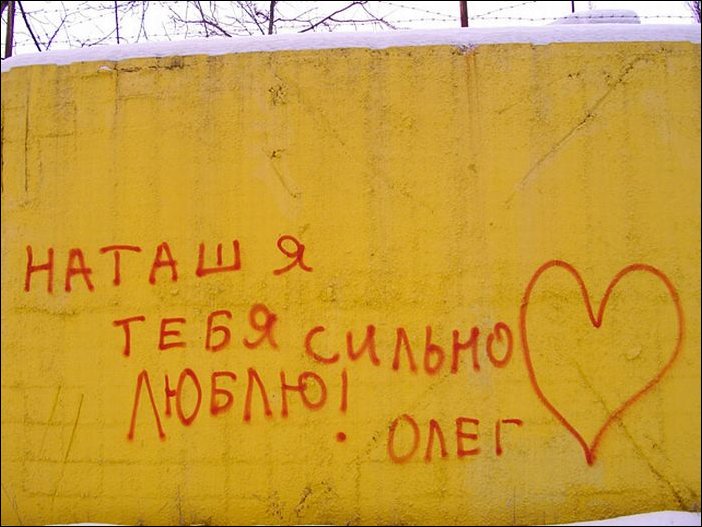 НАТАШ Я
ТЕБЯ СИЛЬНО
ЛЮБЛЮ!
ОЛЕГ